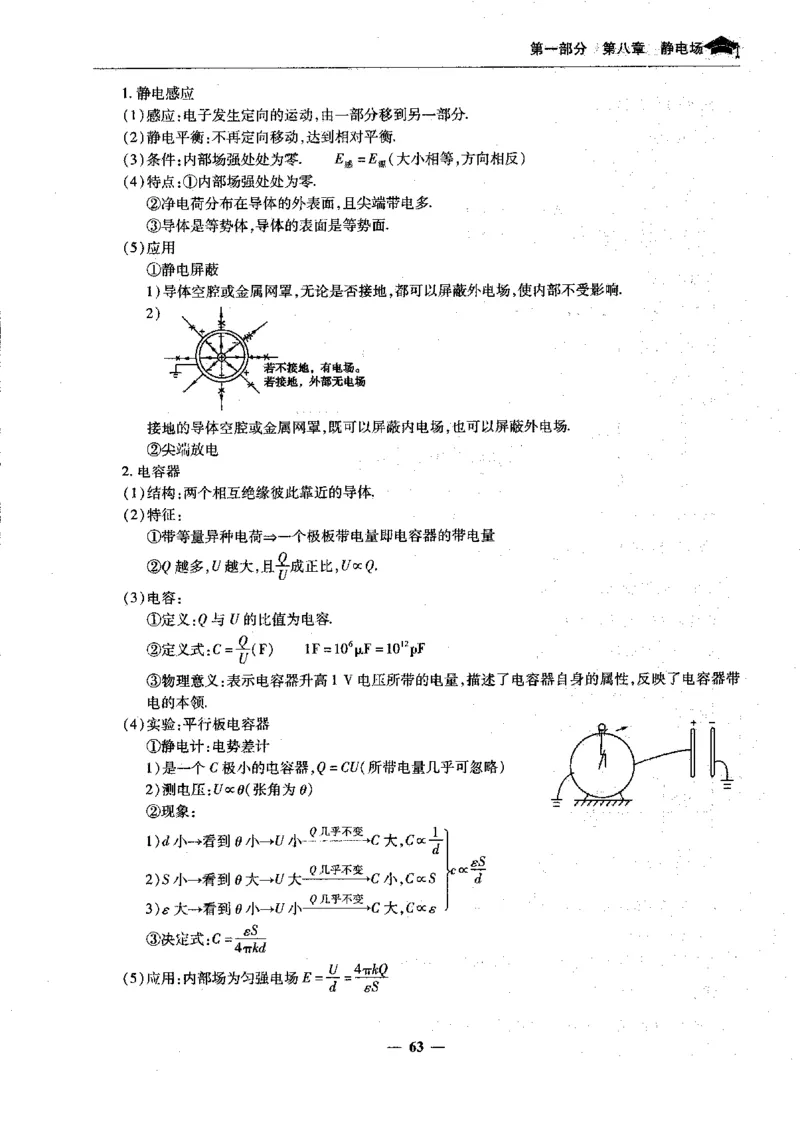 第一部分 第八章 静电场
1. 静电感应
(1)感应:电子发生定向的运动,由一部分移到另一部分.
(2)静电平衡:不再定向移动,达到相对平衡.
(3)条件:内部场强处处为零. E感 = E源(大小相等,方向相反)
(4)特点:①内部场强处处为零.
②净电荷分布在导体的外表面,且尖端带电多.
③导体是等势体,导体的表面是等势面.
(5)应用
①静电屏蔽
1)导体空腔或金属网罩,无论是否接地,都可以屏蔽外电场,使内部不受影响.
2)
若不接地,有电场。
若接地,外部无电场
接地的导体空腔或金属网罩,既可以屏蔽内电场,也可以屏蔽外电场.
②尖端放电
2. 电容器
(1)结构:两个相互绝缘彼此靠近的导体.
(2)特征:
①带等量异种电荷⇒一个极板带电量即电容器的带电量
②Q 越多,U 越大,且Q/U成正比,U∝Q.
(3)电容:
①定义:Q 与 U 的比值为电容.
②定义式:C = Q/U(F) 1F = 10⁶μF = 10¹²pF
③物理意义:表示电容器升高 1 V 电压所带的电量,描述了电容器自身的属性,反映了电容器带
电的本领.
(4)实验:平行板电容器
+ −
①静电计:电势差计
1)是一个 C 极小的电容器,Q = CU(所带电量几乎可忽略)
2)测电压:U∝θ(张角为 θ)
②现象:
1)d 小→看到 θ 小→U 小 Q几乎不变→C 大,C∝1/d
2)S 小→看到 θ 大→U 大 Q几乎不变→C 小,C∝S
c∝εS/d
3)ε 大→看到 θ 小→U 小 Q几乎不变→C 大,C∝ε
③决定式:C = εS/4πkd
(5)应用:内部场为匀强电场 E = U/d = 4πkQ/εS
— 63 —